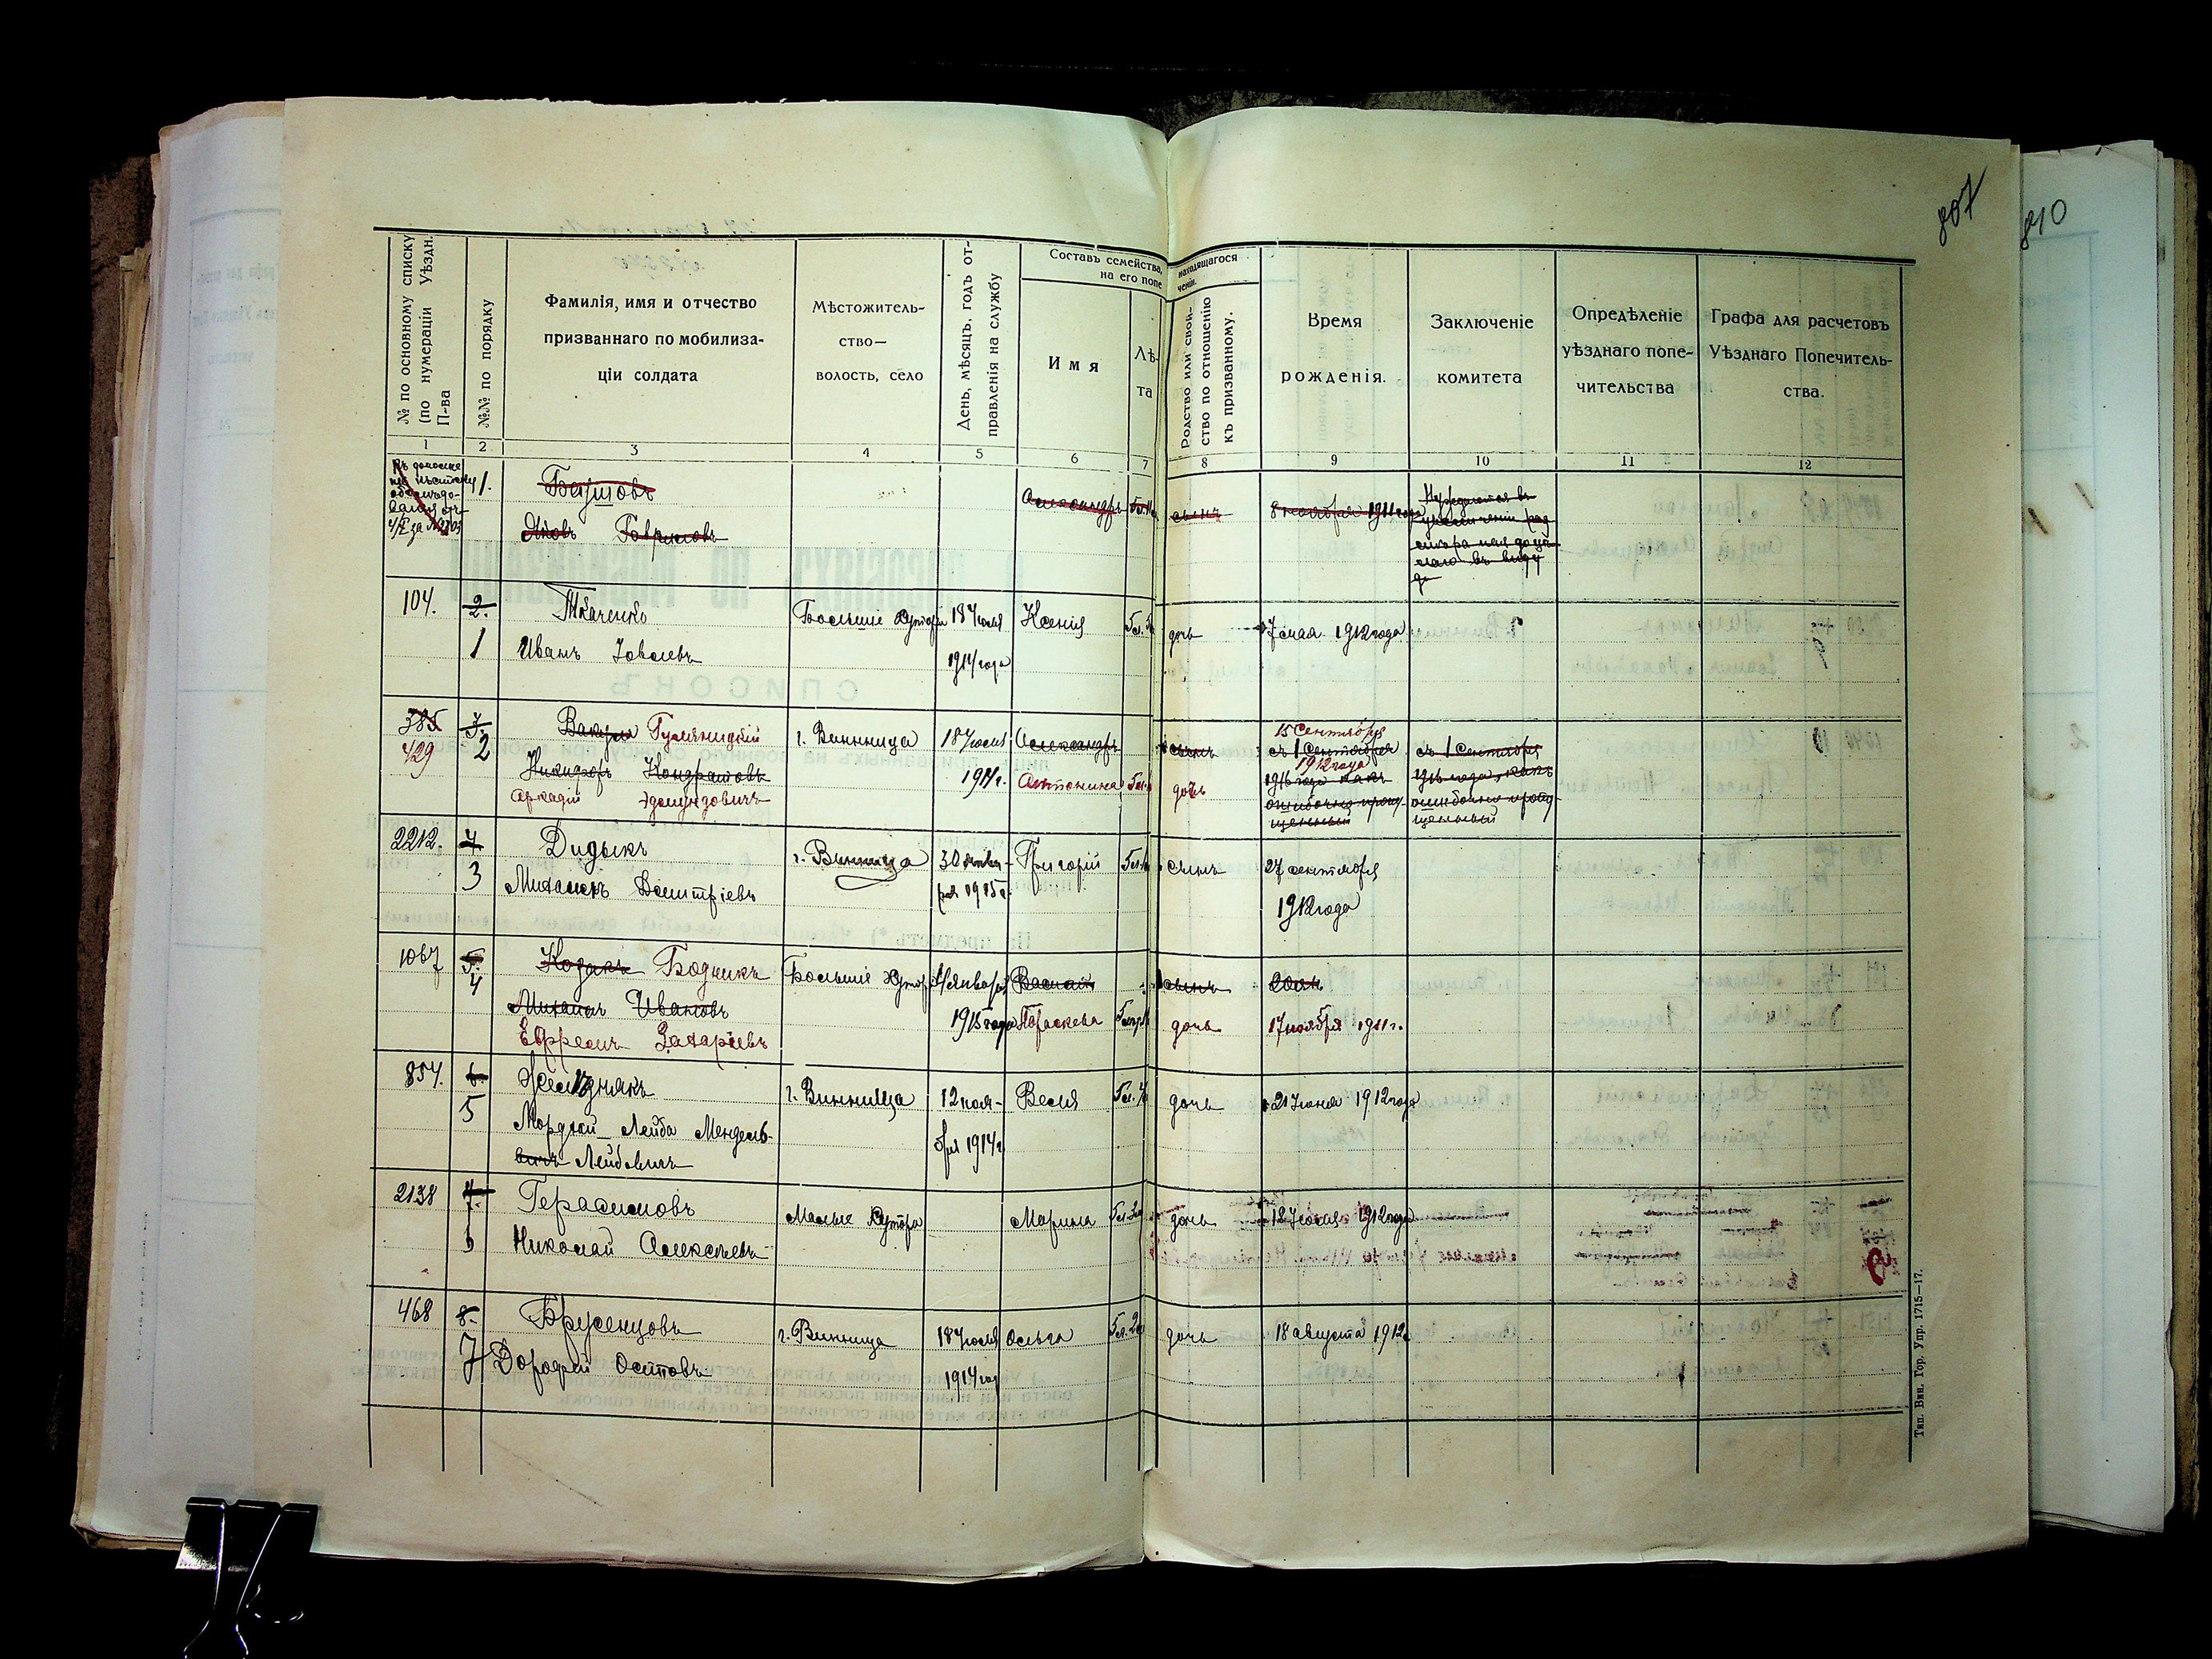 807
810
№ по основному списку
(по нумераціи Уѣздн.
П-ва
№№ по порядку
Фамилія, имя и отчество
призваннаго по мобилиза-
ціи солдата
Мѣстожитель-
ство—
волость, село
День, мѣсяцъ, годъ от-
правленія на службу
Составъ семейства,
на его попе
находящагося
ченіи.
Имя
Лѣ-
та
Родство или свой-
ство по отношенію
къ призванному.
Время
рожденія.
Заключеніе
комитета
Опредѣленіе
уѣзднаго попе-
чительства
Графа для расчетовъ
Уѣзднаго Попечитель-
ства.
1 2 3 4 5 6 7 8 9 10 11 12
1. Александръ сынъ 8 ноября 1911 года
Яковъ
104. 2. Ткаченко Большіе Хутора 18 Іюля Ксенія дочь 7 мая 1912 года
1 Иванъ Іовлевъ 1914 года
385 3. Гумѣницкій г. Винница 18 Іюля Александръ сынъ 15 Сентября
съ 1 Сентября съ 1 Сентября
429 2 Никифоръ Кондратовъ 1914 г. Антонина дочь 1912 года
1916 года какъ 1916 года, какъ
Аркадій Эдмундовичъ ошибочно пропу- ошибочно пропу-
щенный щенный
2212. 4 Дидыкъ г. Винница 30 Григорій 5 л. сынъ 27 сентября
3 Михаилъ Дмитріевъ 1915 г. 1912 года
1067 5. Козакъ Бодникъ Большіе Хутор Января Василій сынъ
4 Михаилъ Ивановъ 1915 года Параскева дочь 17 ноября 1911 г.
Ефремъ Захаріевъ
854. 6. Желѣзнякъ г. Винница 12 ноя- Веля дочь 21 Іюня 1912 года
5 Мордхай-Лейба Мендель- бря 1914 г.
вичъ Лейбовичъ
2138 7. Герасимовъ Малые Хутора Марина дочь 12 Іюля 1912 года
6 Николай Алексѣевъ
468 8. Брусенцовъ г. Винница 18 Іюля Ольга дочь 18 августа 1912
7 Дорофей Остаповъ 1914 год
Тип. Вин. Гор. Упр. 1715—17.